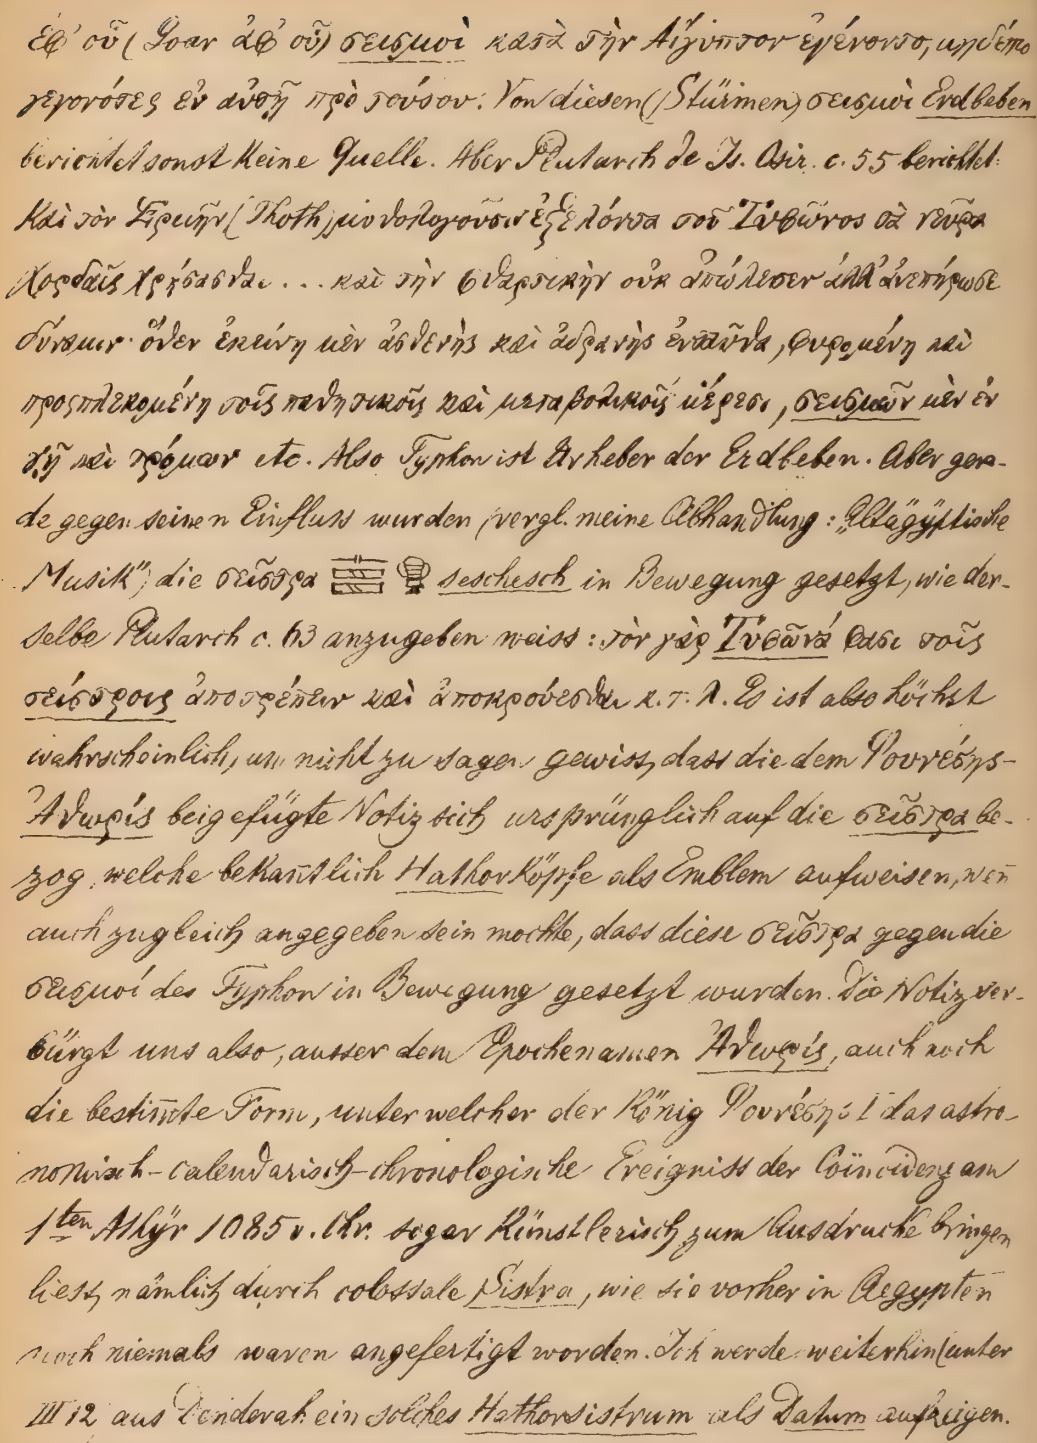 ἐφ' οὗ (Goar ἀφ' οὗ) σεισμοὶ κατὰ τὴν Αἴγυπτον ἐγένοντο, μηδέπω
γεγονότες ἐν αὐτῇ πρὸ τούτου. Von diesen (Stürmen) σεισμοὶ Erdbeben
berichtet sonst keine Quelle. Aber Plutarch de Is. Osir. c. 55 berichtet:
Καὶ τὸν Ἑρμῆν (Thoth) μυθολογοῦσιν ἐξελόντα τοῦ Τυφῶνος τὰ νεῦρα
χορδαῖς χρήσασθαι ... καὶ τὴν φθαρτικὴν οὐκ ἀπώλεσεν ἀλλ' ἀνεπήρωσε
δύναμιν· ὅθεν ἐκείνη μὲν ἀσθενὴς καὶ ἀδρανὴς ἐνταῦθα, φυρομένη καὶ
προςπλεκομένη τοῖς παθητικοῖς καὶ μεταβολικοῖς μέρεσι, σεισμῶν μὲν ἐν
γῇ καὶ τρόμων etc. Also Typhon ist Urheber der Erdbeben. Aber gera-
de gegen seinen Einfluss wurden (vergl. meine Abhandlung: „Altägyptische
Musik") die σεῖστρα seschesch in Bewegung gesetzt, wie der-
selbe Plutarch c. 63 anzugeben weiss: τὸν γὰρ Τυφῶνά φασι τοῖς
σείστροις ἀποτρέπειν καὶ ἀποκρούεσθαι κ. τ. λ. Es ist also höchst
wahrscheinlich, um nicht zu sagen gewiss, dass die dem Ῥουνέσης-
Ἀθωρίς beigefügte Notiz sich ursprünglich auf die σεῖστρα be-
zog, welche bekan̄tlich Hathorköpfe als Emblem aufweisen, wen̄
auch zugleich angegeben sein mochte, dass diese σεῖστρα gegen die
σεισμοί des Typhon in Bewegung gesetzt wurden. Die Notiz ver-
bürgt uns also, ausser dem Epochenamen Ἀθωρίς, auch noch
die bestim̄te Form, unter welcher der König Ῥουνέσης I das astro-
nomisch-calendarisch-chronologische Ereigniss der Coïncidenz am
1ten Athyr 1085 v. Chr. sogar künstlerisch zum Ausdrucke bringen
liess, nämlich durch colossale Sistra, wie sie vorher in Aegypten
noch niemals waren angefertigt worden. Ich werde weiterhin (unter
III 12 aus Denderah ein solches Hathorsistrum als Datum aufzeigen.